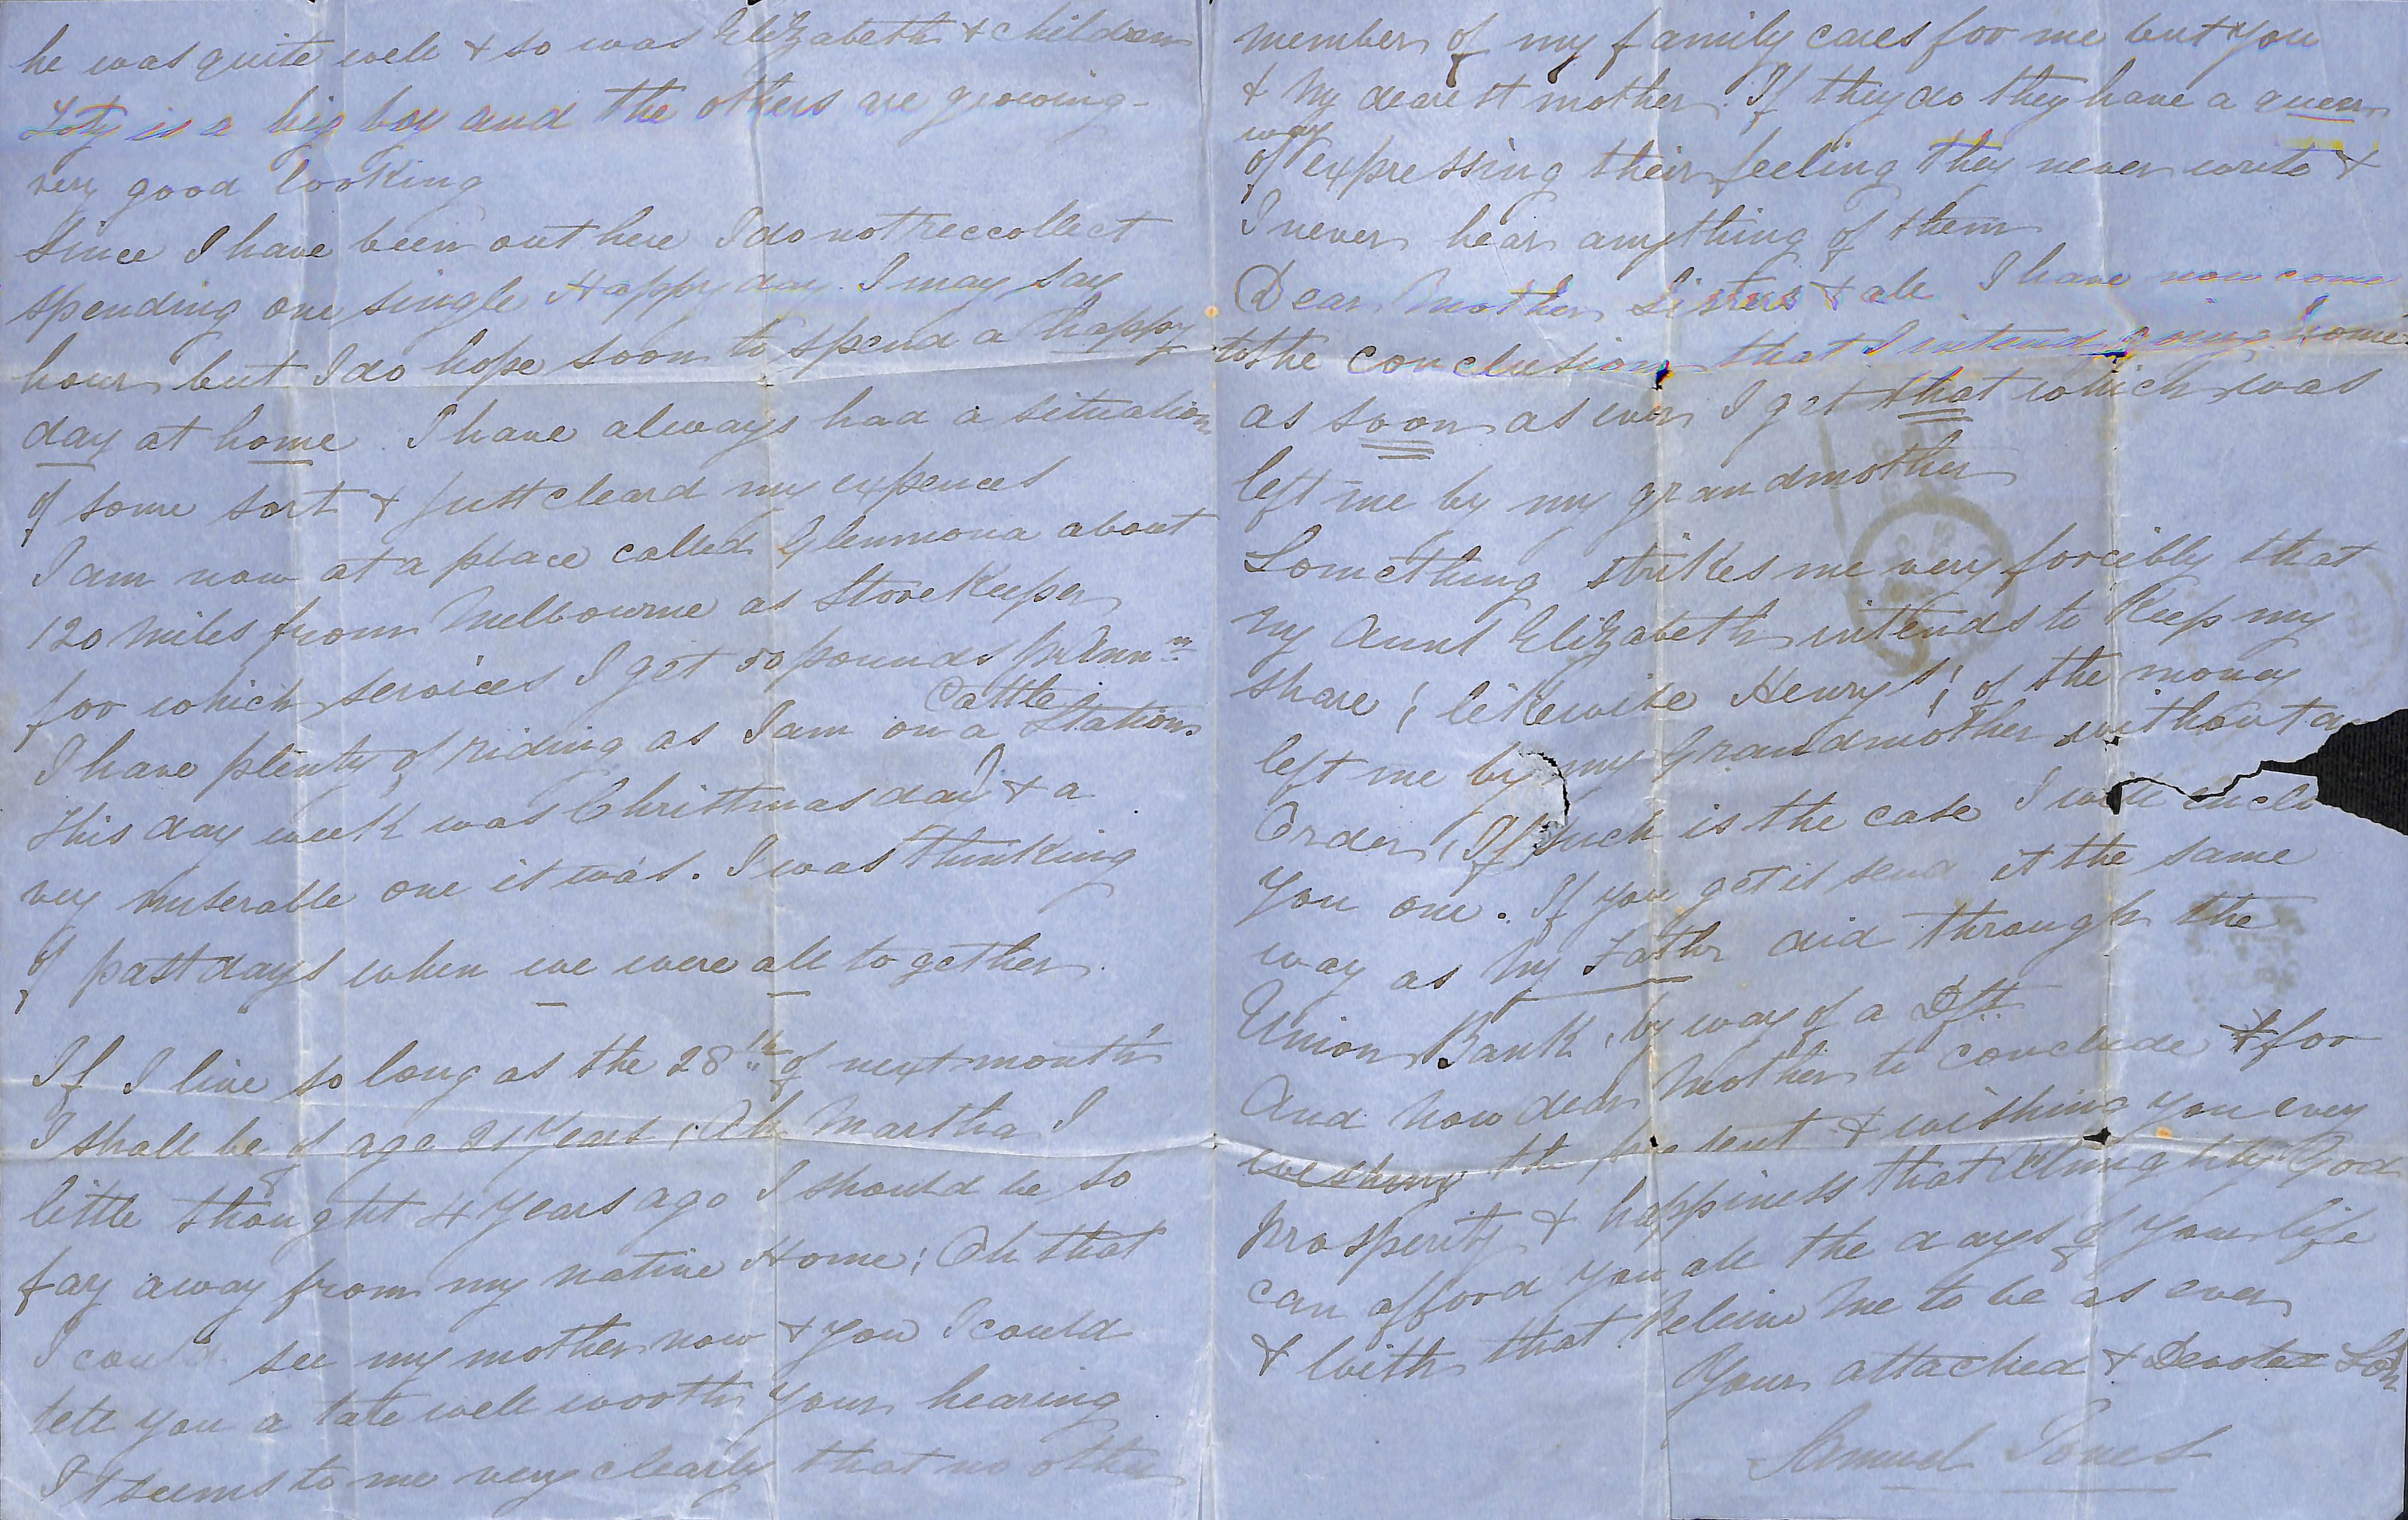 he was quite well & so was Elizabeth & children
Toty is a big boy and the others are growing
very good looking
Since I have been out here I do not reccollect
spending one single Happy day. I may say
hour but I do hope soon to spend a happy
day at home. I have always had a situation
of some sort & just cleard my expences
I am now at a place called Glenmona about
120 miles from Melbourne as Store Keeper
for which services I get 50 pounds pr Annm
I have plenty of riding as I am on a Cattle Station
This day week was Christmas day & a
very miserable one it was. I was thinking
of past days when we were all together.
If I live so long as the 28th of next month
I shall be of age 21 Years; Ah Martha I
little thought 4 Years ago I should be so
far away from my native Home; Oh that
I could see my mother now & you I could
tell you a tale well worth your hearing
It seems to me very clearly that no other
member of my family cares for me but you
& My dearest mother. If they do they have a queer
way
of expressing their feeling they never wrote &
I never hear anything of them
Dear Mother Sisters & all I have now come
to the conclusion that I intend going home
as soon as ever I get that which was
left me by my grandmother
Something strikes me very forcibly that
My Aunt Elizabeth intends to Keep my
share; likewise Henry's; of the money
left me by my Grandmother without
Order, If such is the case I will
You one. If you get it send it the same
way as My Father did through the
Union Bank, by way of a Dft.
And now dear Mother to conclude for
the present & wishing you every
prosperity & happiness that Almighty God
can afford you all the days of your life
& with that Believe Me to be as ever
Your attached & Devoted Son
Samuel Jones